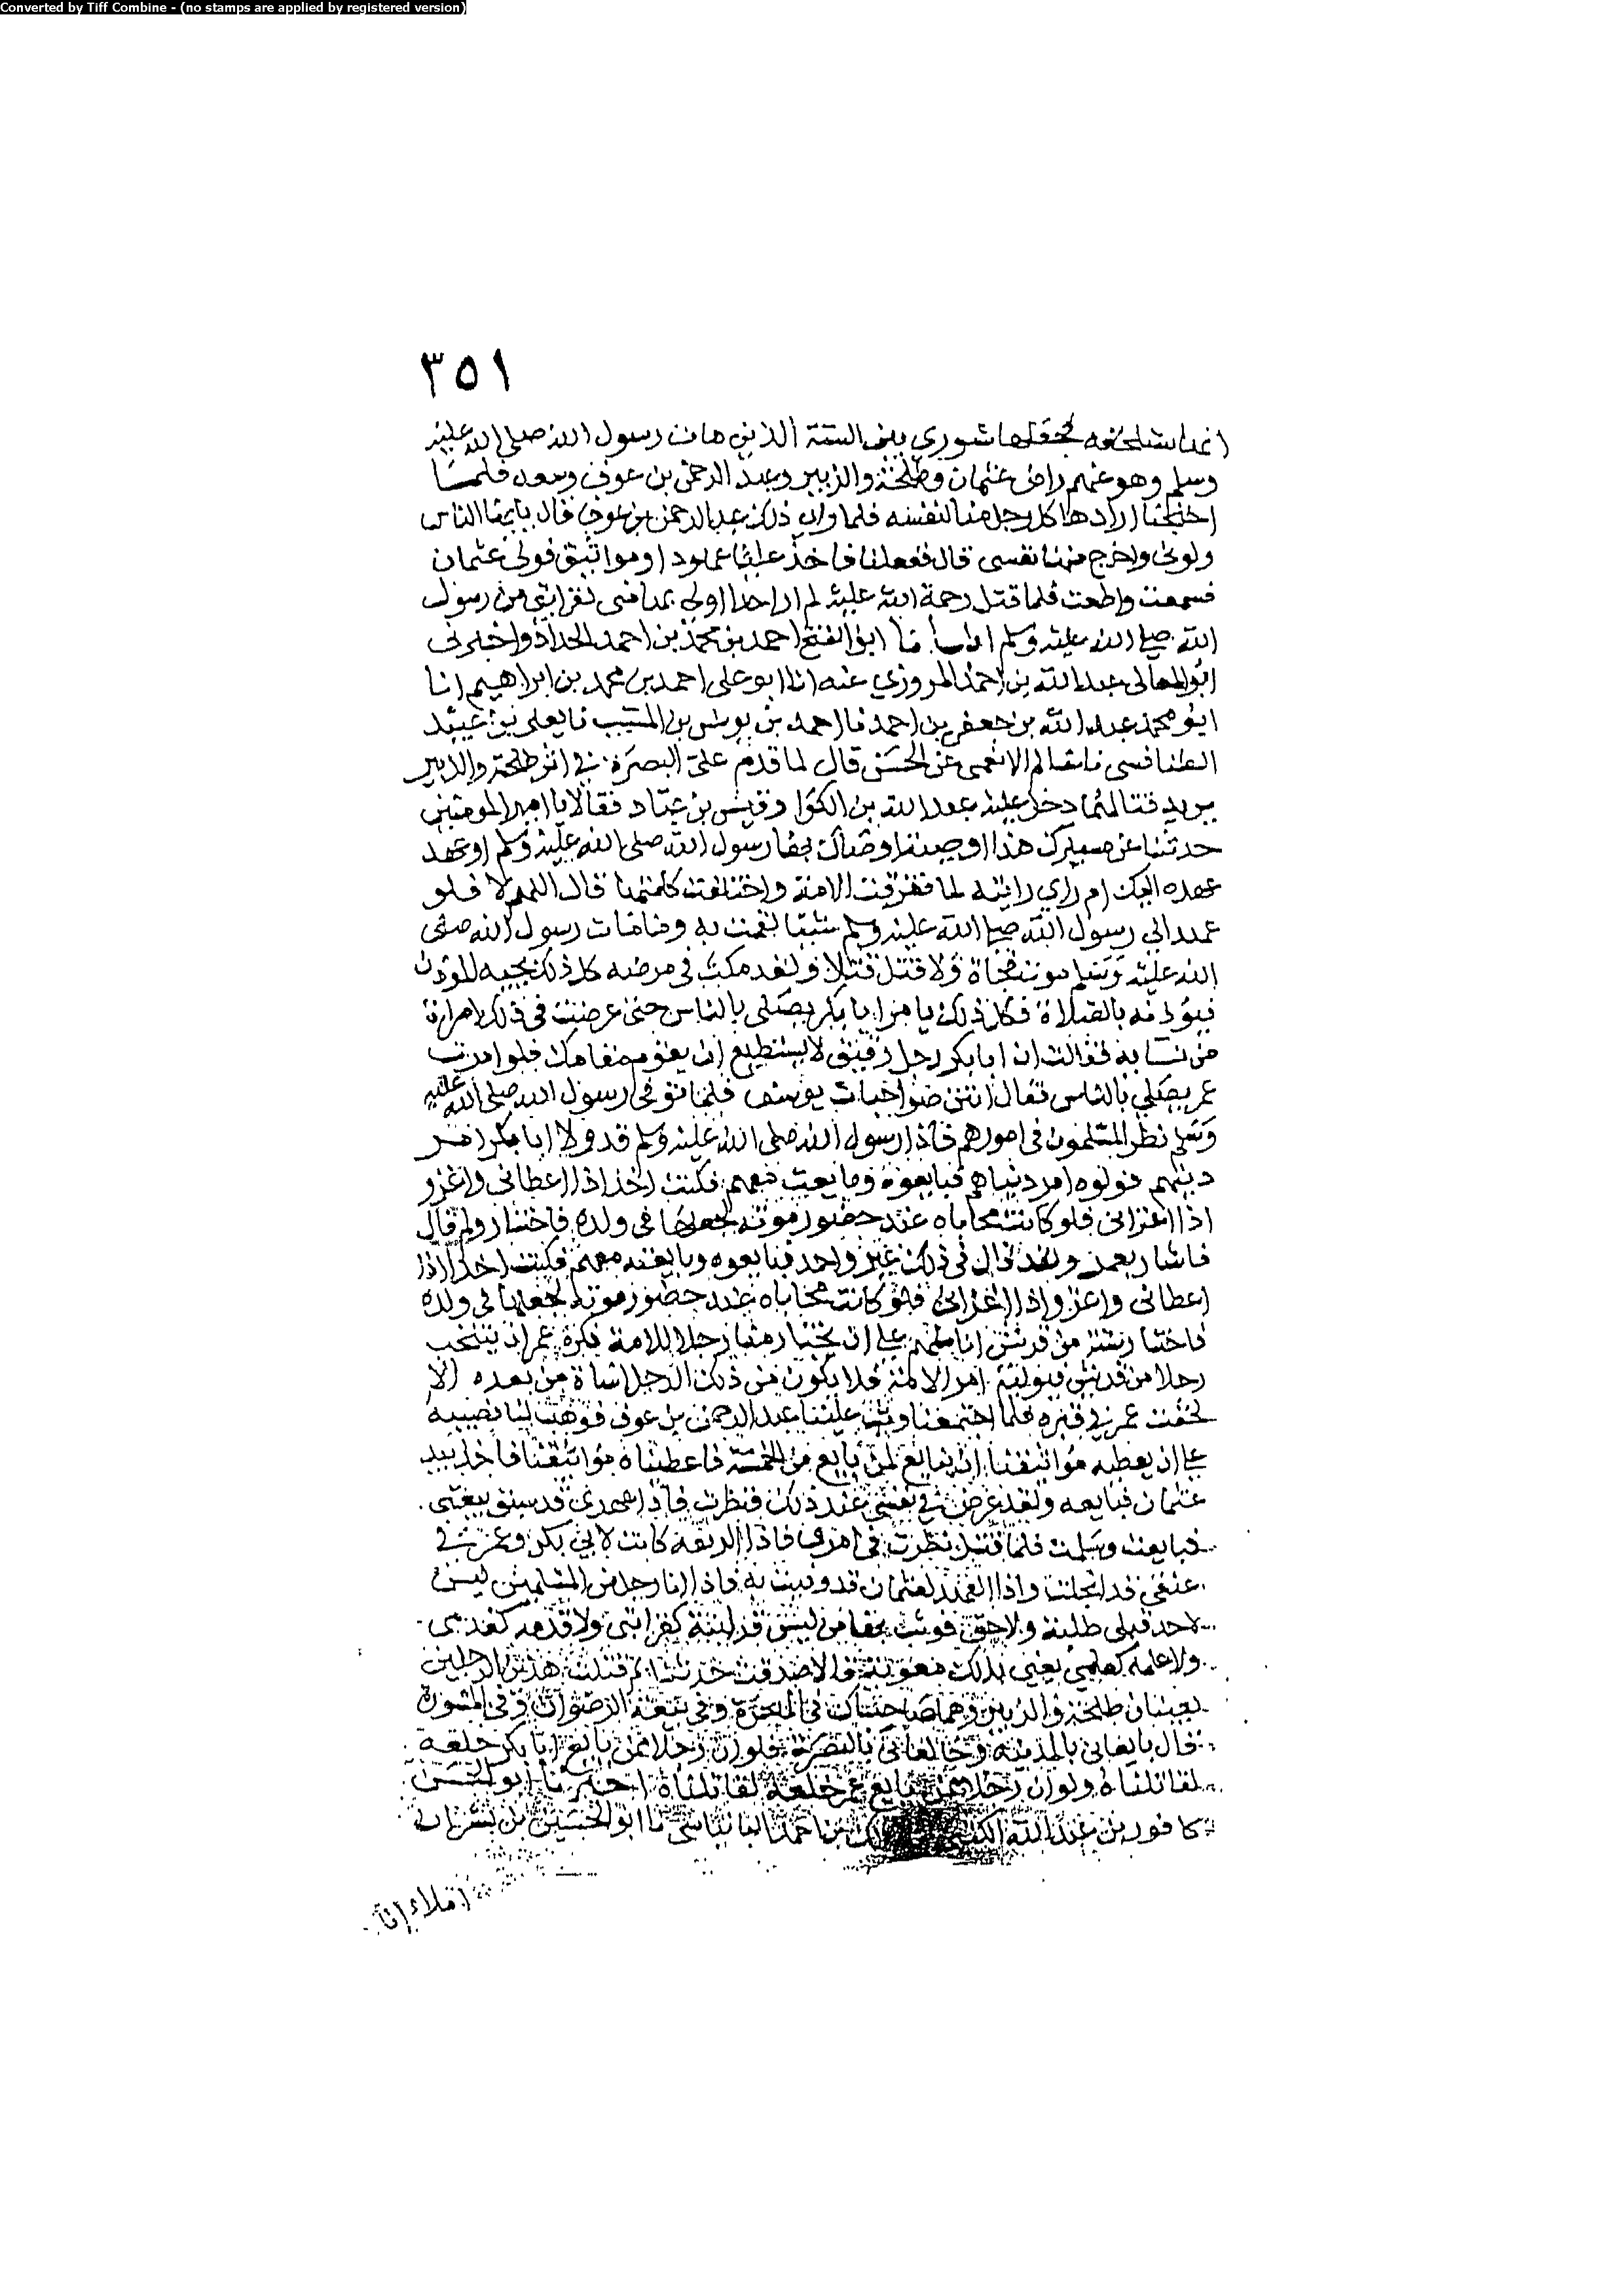 Converted by Tiff Combine - (no stamps are applied by registered version)
٣٥١
فجعلها شورى بين الستة الذين مات رسول الله صلى الله عليه
وسلم وهو عنهم راض عثمان وطلحة والزبير وعبد الرحمن بن عوف وسعد فلما
اجتمعنا ارادها كل رجل منا لنفسه فلما راى ذلك عبد الرحمن بن عوف قال يا ايها الناس
ولونى واخرج منها نفسى قال ففعلنا فاخذ علينا عهودا ومواثيق فولى عثمان
فسمعت واطعت فلما قتل رحمة الله عليه لم ار احدا اولى بها منى لقرابتى من رسول
الله صلى الله عليه وسلم ابو الفتح احمد بن محمد بن احمد الحداد واخبرنى
ابو المعالى عبد الله بن احمد المروزي عنه انا ابو على احمد بن محمد بن ابراهيم انا
ابو محمد عبد الله بن جعفر بن احمد نا احمد بن يونس بن المسيب نا يعلى بن عبيد
الطنافسى نا عن الحسن قال لما قدم على البصرة في اثر طلحة والزبير
يريد قتالهما دخل عليه عبد الله بن الكوا وقيس بن عباد فقالا يا امير المومنين
حدثنا عن مسيرك هذا اوصية اوصاك بها رسول الله صلى الله عليه وسلم او عهد
عهده اليك ام راي رايته لما تفرقت الامة واختلفت كلمتها قال اللهم لا فلو
عهد الي رسول الله صلى الله عليه وسلم شيئا لقمت به وما مات رسول الله صلى
الله عليه وسلم موت فجأة ولا قتل قتلا ولقد مكث في مرضه كل ذلك يجيه الموذن
فيوذنه بالصلاة فكل ذلك يامر ابا بكر يصلى بالناس حتى عرضت فى ذلك امراة
من نسايه فقالت ان ابا بكر رجل رقيق لا يستطيع ان يقوم مقامك فلو امرت
عمر يصلي بالناس فقال انتن صواحبات يوسف فلما توفى رسول الله صلى الله عليه
وسلم نظر المسلمون فى امورهم فاذا رسول الله صلى الله عليه وسلم قد ولا ابا بكر امر
دينهم فولوه امر دنياهم فبايعوه وبايعت معهم فكنت اخذ اذا اعطانى واغزو
اذا اغزانى فلو كانت محاباه عند حضور موته لجعلها فى ولده فاختار ولم قال
فاشار بعمر ولقد قال فى ذلك غير واحد فبايعوه وبايعته معهم فكنت اخذ اذا
اعطانى واغزوا اذا اغزانى فلو كانت محاباه عند حضور موته لجعلها فى ولده
فاختار ستة من قريش انا منهم على ان يختار منا رجلا للامة فكره عمر ان ينتخب
رجلا من قريش فيوليه امر الامة فلا يكون من ذلك الرجل اساة من بعده الا
لحقت عمر في قبره فلما اجتمعنا وثب علينا عبد الرحمن بن عوف فوهب لنا نصيبه
على ان يعطيه مواثيقنا ان نبايع لمن بايع من الخمسة فاعطيناه مواثيقنا فاخذ بيد
عثمان فبايعه ولقد عرض في نفسى عند ذلك فنظرت فاذا عهدى قد سبق بيعتى
فبايعت وسلمت فلما قتل نظرت فى امرى فاذا الربقة كانت لابي بكر وعمر في
عنقى قد انحلت واذا العهد لعثمان قد وفيت به فاذا انا رجل من المسلمين ليس
لاحد قبلى طلبة ولا حق فوثب بها من ليس قرابته كقرابتى ولا قدمه كقدمى
ولا علمه كعلمي يعنى بذلك معوية قالا صدقت حدثنا لم قتلت هذين الرجلين
يعنيان طلحة والزبير وهما صاحباك فى الهجرة وفى بيعة الرضوان وفى المشورة
قال بايعانى بالمدينة وخالفانى بالبصرة فلو ان رجلا ممن بايع ابا بكر خلعه
لقاتلناه ولو ان رجلا ممن بايع عمر خلعه لقاتلناه اخبرنا ابو الحسن
كافور بن عبد الله بن احمد البانياسى نا ابو الحسين بن بشران
املاء انا